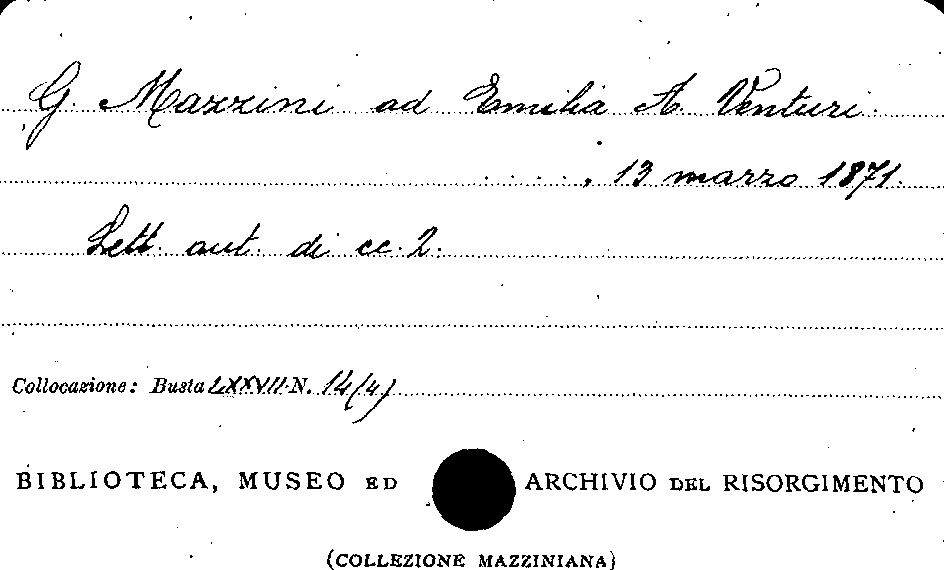 G. Mazzini ad Emilia A. Venturi.
....., 13 marzo 1871.
Lett. aut. di cc. 2.
Collocazione: Busta LXXVII N. 14(4)
BIBLIOTECA, MUSEO ED ARCHIVIO DEL RISORGIMENTO
(COLLEZIONE MAZZINIANA)